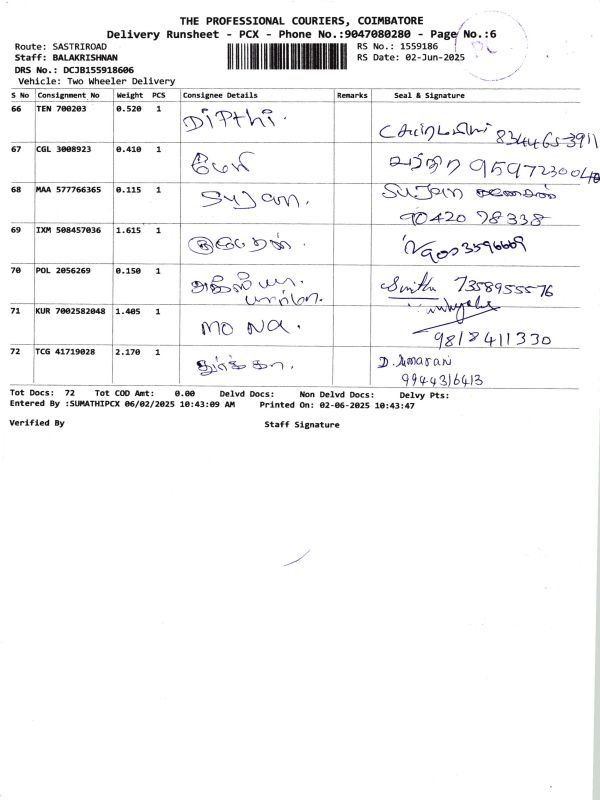 THE PROFESSIONAL COURIERS, COIMBATORE
Delivery Runsheet - PCX - Phone No.:9047080280 - Page No.:6
Route: SASTRIROAD RS No.: 1559186
Staff: BALAKRISHNAN RS Date: 02-Jun-2025
DRS No.: DCJB155918606
Vehicle: Two Wheeler Delivery
S No Consignment No Weight PCS Consignee Details Remarks Seal & Signature
66 TEN 700203 0.520 1 Dipthi.
8344653911
67 CGL 3008923 0.410 1 மேனி
68 MAA 577766365 0.115 1 Sujan. Sujan
90420 78338
69 IXM 508457036 1.615 1
70 POL 2056269 0.150 1 7358955576
71 KUR 7002582048 1.405 1 MONA.
9818411330
72 TCG 41719028 2.170 1 துர்க்கா.
9944316413
Tot Docs: 72 Tot COD Amt: 0.00 Delvd Docs: Non Delvd Docs: Delvy Pts:
Entered By :SUMATHIPCX 06/02/2025 10:43:09 AM Printed On: 02-06-2025 10:43:47
Verified By Staff Signature